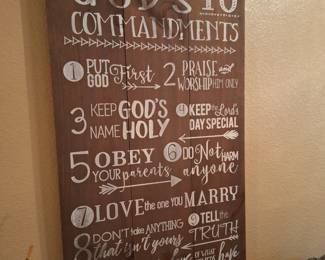 GOD'S 10
COMMANDMENTS
1 PUT GOD First
2 PRAISE and WORSHIP HIM ONLY
3 KEEP GOD'S NAME HOLY
4 KEEP the Lord's DAY SPECIAL
5 OBEY YOUR parents
6 DO Not HARM anyone
7 LOVE the one YOU MARRY
8 DON'T take ANYTHING that isn't yours
9 TELL the TRUTH
OF WHAT